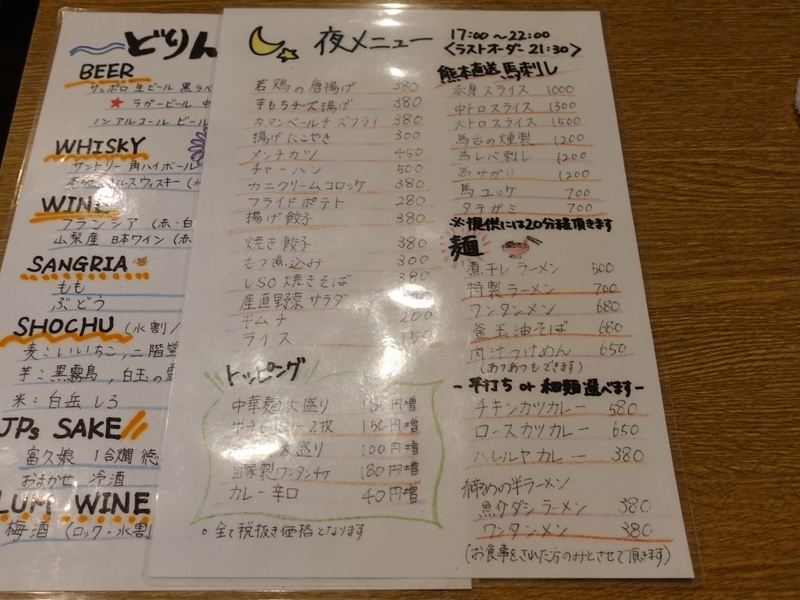 どりん
BEER
サッポロ 生ビール 黒ラベ
★ ラガービール 中
ノンアルコール ビール
WHISKY
サントリー 角ハイボール
WINE
フランシア (赤・白
山梨産 日本ワイン (赤・
SANGRIA
もも
ぶどう
SHOCHU (水割/
麦:いいちこ,二階堂
芋:黒霧島,白玉の露
米:白岳しろ
JPs SAKE
富久娘 1合燗 徳
おまかせ 冷酒
LUM WINE
梅酒 (ロック・水割
夜メニュー
17:00〜22:00
<ラストオーダー 21:30>
若鶏の唐揚げ 380
チーズ揚げ 380
カマンベールチーズフライ 380
揚げたこやき 300
メンチカツ 450
チャーハン 500
カニクリームコロッケ 380
フライドポテト 280
揚げ餃子 380
焼き餃子 380
もつ煮込み 300
LSO焼きそば 380
産直野菜サラダ
キムチ 200
ライス 150
トッピング
中華麺大盛り 円増
2枚 150円増
大盛り 100円増
自家製ワンタン4ヶ 180円増
カレー辛口 40円増
○全て税抜き価格となります
熊本直送 馬刺し
赤身スライス 1000
中トロスライス 1300
大トロスライス 1500
馬舌の燻製 1200
馬レバ刺し 1200
馬サガリ 1200
馬ユッケ 700
タテガミ 700
※提供には20分程頂きます
麺
煮干しラーメン 500
特製ラーメン 700
ワンタンメン 680
釜玉油そば 680
肉汁つけめん 650
(あつあつもできます)
-平打ち or 細麺 選べます-
チキンカツカレー 580
ロースカツカレー 650
ハレルヤカレー 380
締めの半ラーメン
魚介ダシラーメン 380
ワンタンメン 380
(お食事をされた方のみとさせて頂きます)